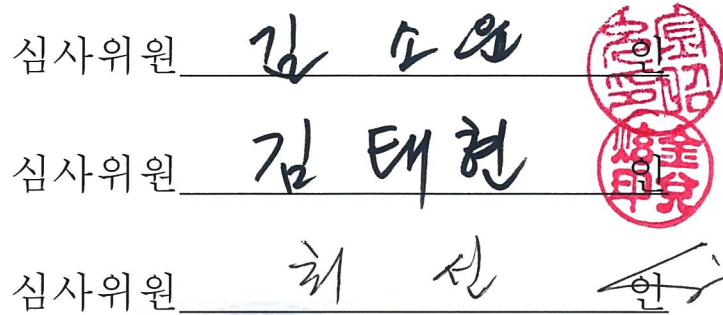 심사위원 김 소윤 인
심사위원 김 태현 인
심사위원 최 선 인